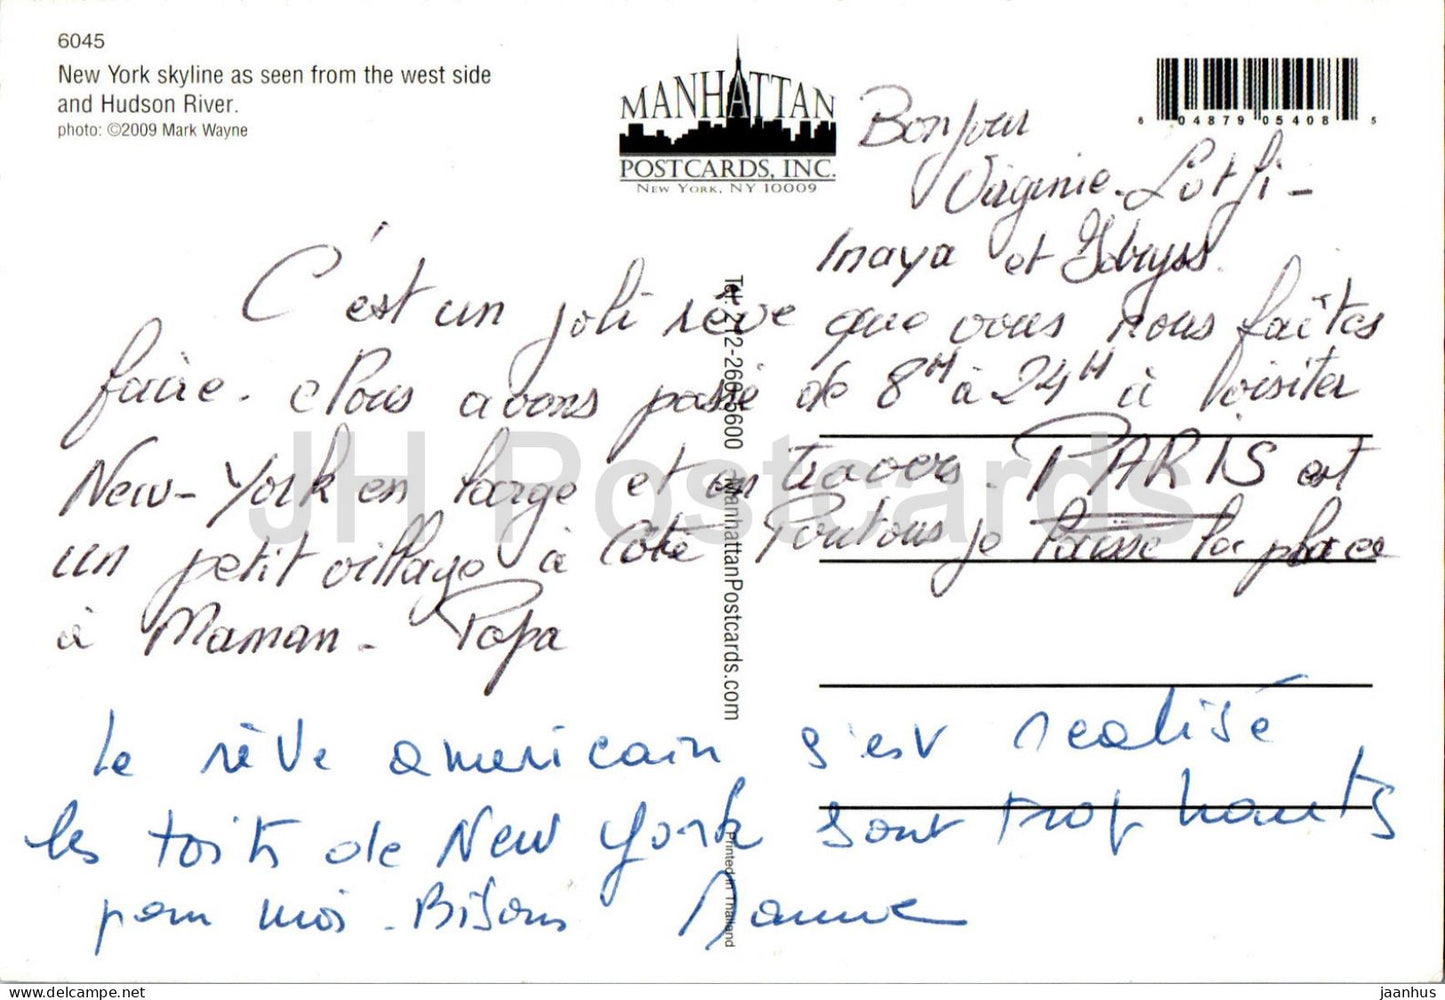 6045
New York skyline as seen from the west side
and Hudson River.
photo: ©2009 Mark Wayne
MANHATTAN
POSTCARDS, INC.
NEW YORK, NY 10009
6 04879 05408 5
Bonjour
Virginie - Lotfi -
Inaya et Idryss.
C'est un joli rêve que vous nous faîtes
faire. Nous avons passé de 8H à 24H à visiter
New-York en large et en travers. PARIS est
un petit village à côté Poutous je laisse la place
à Maman - Papa
Le rêve americain s'est realisé
les toits de New York sont trop hauts
pour moi. Bisous
Tel: 212-260-5600 ManhattanPostcards.com
Printed in Thailand
JH Postcards
jaanhus
jaanhus.com